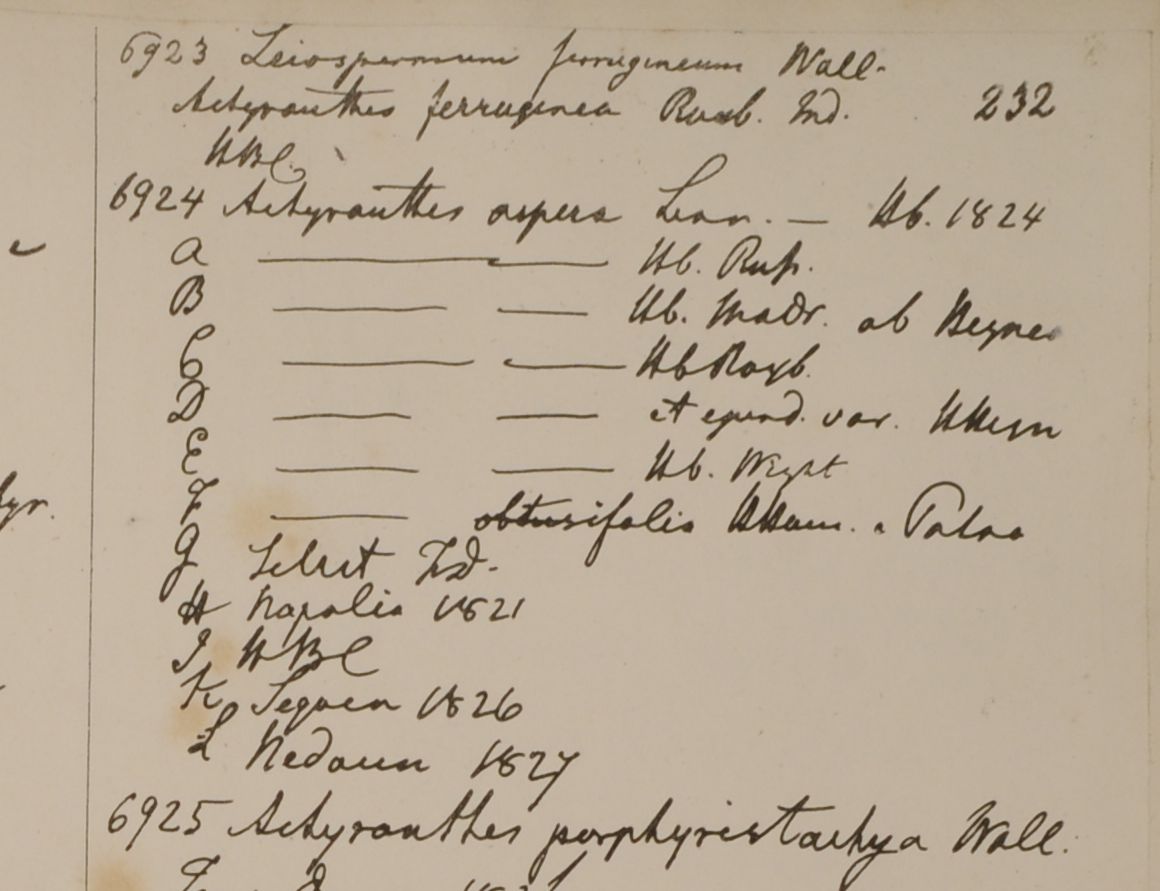 6923 Leiospermum ferrugineum Wall.
Achyranthes ferruginea Roxb. Ind. 232
HBC.
6924 Achyranthes aspera Linn. — Hb. 1824
A ——— —— Hb. Russ.
B ——— —— Hb. Madr. ab Heyne
C ——— —— Hb Roxb.
D ——— —— et ejusd. var. HHeyn
E ——— —— Hb. Wight
F ——— obtusifolia HHam. a Patna
G Silhet FD.
H Napalia 1821
I HBC
K Segaen 1826
L 1827
6925 Achyranthes porphyristachya Wall.